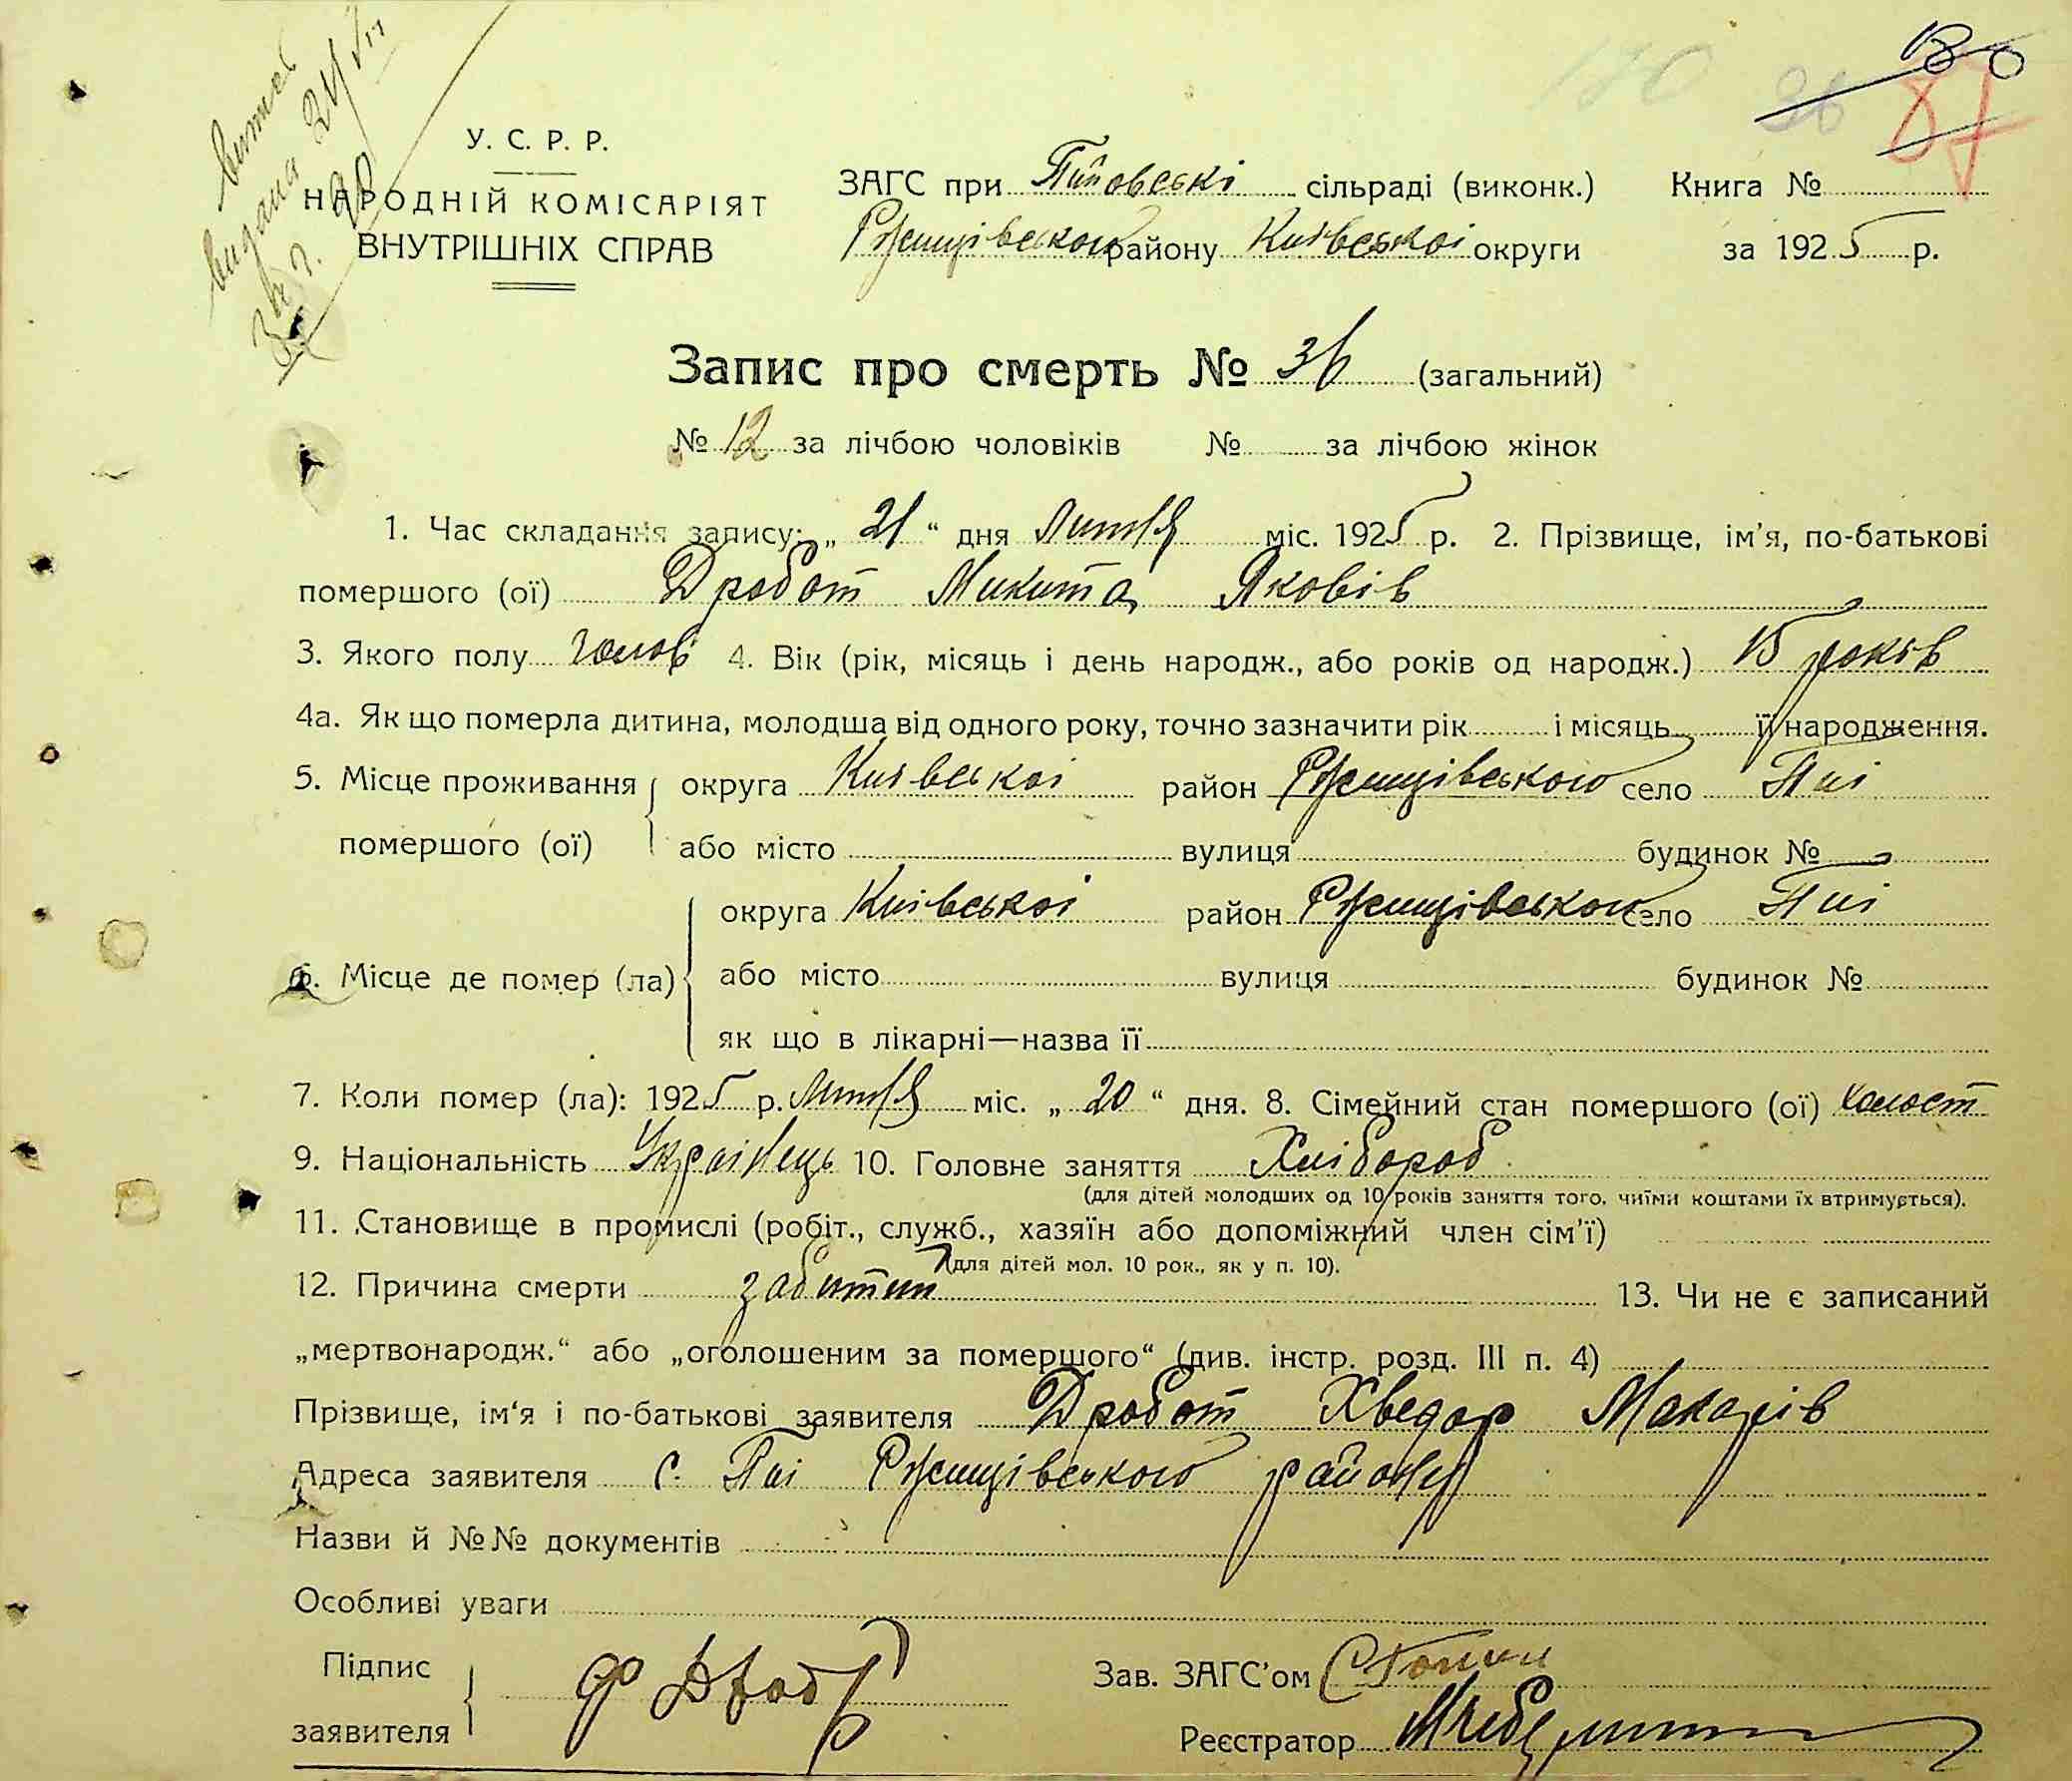 130
180 36 87
витяг
видана 24/VII
34 г.
У. С. Р. Р.
НАРОДНІЙ КОМІСАРІЯТ
ВНУТРІШНІХ СПРАВ
ЗАГС при Піївські сільраді (виконк.) Книга №
Ржищівського району Київської округи за 1925 р.
Запис про смерть № 36 (загальний)
№ 12 за лічбою чоловіків № за лічбою жінок
1. Час складання запису: „ 21 “ дня Липня міс. 1925 р. 2. Прізвище, ім'я, по-батькові
помершого (ої) Дробот Микита Яковів
3. Якого полу чолов 4. Вік (рік, місяць і день народж., або років од народж.) 15 років
4а. Як що померла дитина, молодша від одного року, точно зазначити рік і місяць її народження.
5. Місце проживання округа Київської район Ржищівського село Пиї
помершого (ої) або місто вулиця будинок №
округа Київської район Ржищівського село Пиї
6. Місце де помер (ла) або місто вулиця будинок №
як що в лікарні—назва її
7. Коли помер (ла): 1925 р. Липня міс. „ 20 “ дня. 8. Сімейний стан помершого (ої) холост
9. Національність Українець 10. Головне заняття Хлібороб
(для дітей молодших од 10 років заняття того, чиїми коштами їх втримується).
11. Становище в промислі (робіт., служб., хазяїн або допоміжний член сім'ї)
(для дітей мол. 10 рок., як у п. 10).
12. Причина смерти забитий 13. Чи не є записаний
„мертвонародж.“ або „оголошеним за помершого“ (див. інстр. розд. III п. 4)
Прізвище, ім'я і по-батькові заявителя Дробот Хведор Макарів
Адреса заявителя с. Пиї Ржищівського району
Назви й №№ документів
Особливі уваги
Підпис
заявителя Ф Дробот
Зав. ЗАГС'ом
Реєстратор